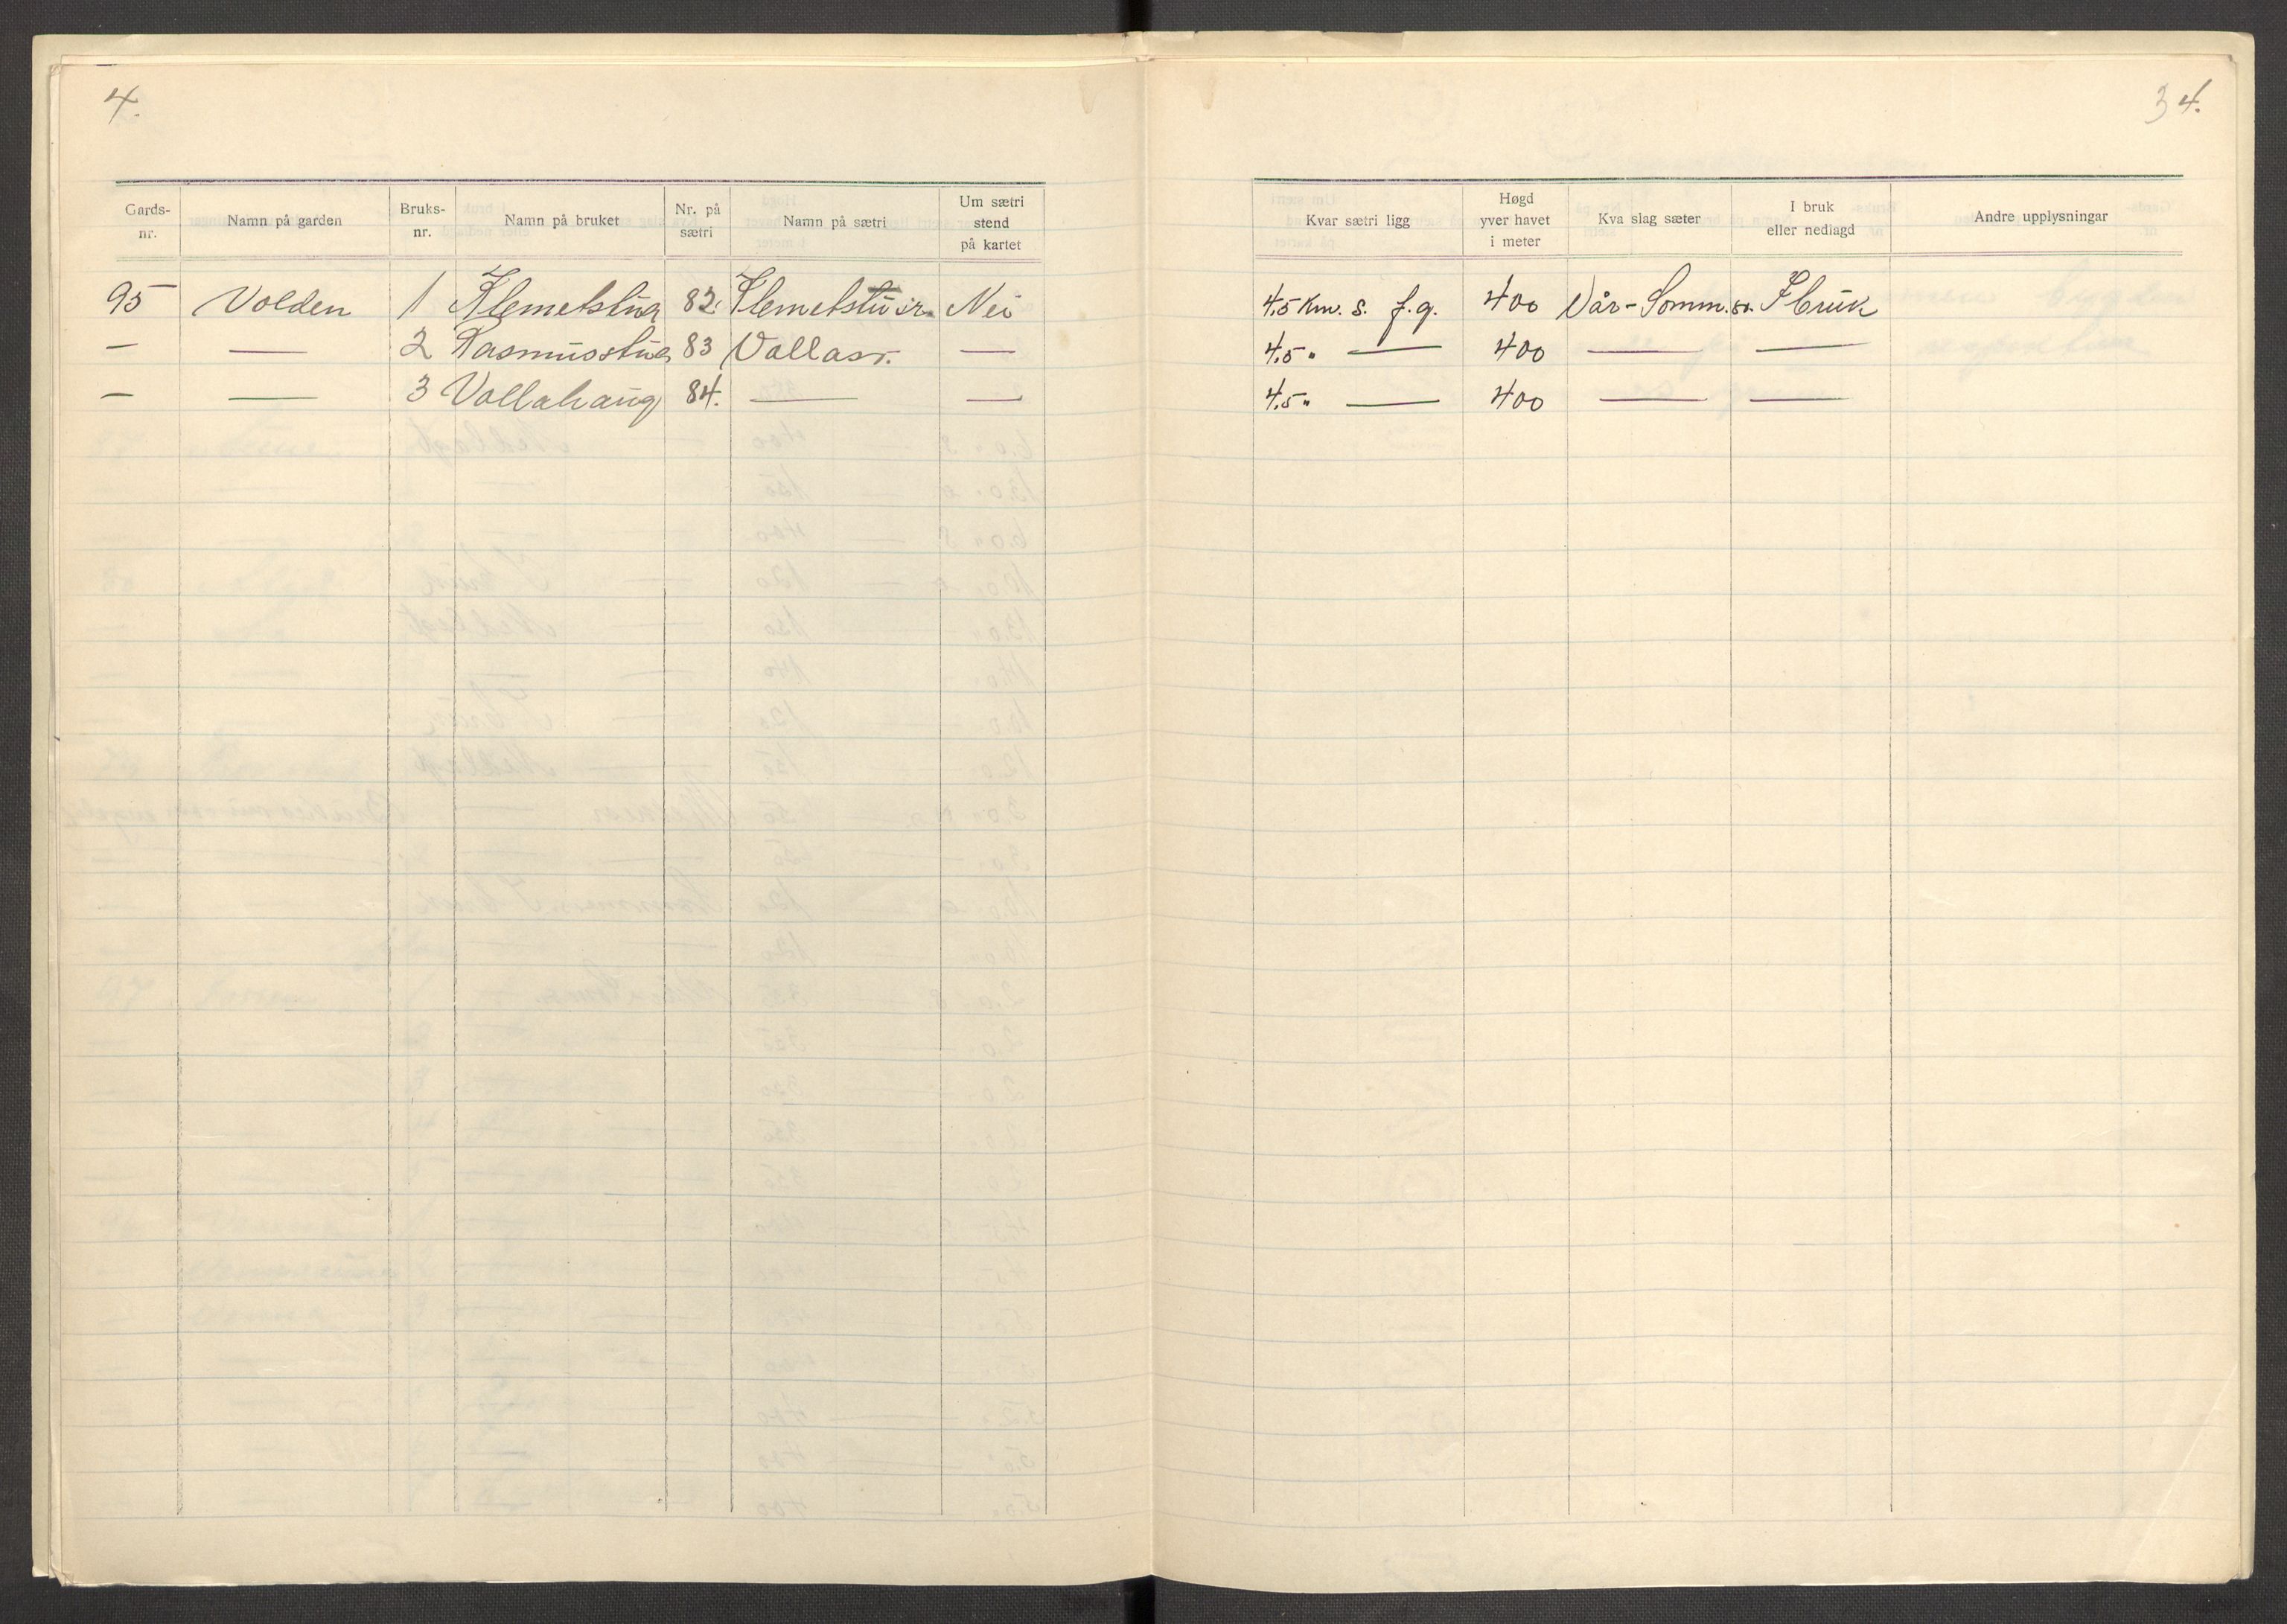 4.
34.
Gards-nr. Namn på garden Bruks-nr. Namn på bruket Nr. på sætri Namn på sætri Um sætri stend på kartet Kvar sætri ligg Høgd yver havet i meter Kva slag sæter I bruk eller nedlagd Andre upplysningar
95 Volden 1 Klemetstua 82. Klemetstusr. Nei 4,5 Km. s. f.g. 400 Vår-Somm.sr. I bruk
— — 2 Rasmusstua 83 Vollasr. — 4,5 " — 400 — —
— — 3 Vollahaug 84. — — 4,5 " — 400 — —